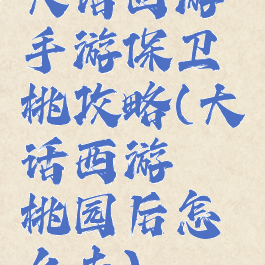 大话西游
手游保卫
桃攻略(大
话西游
桃园后怎
么去)